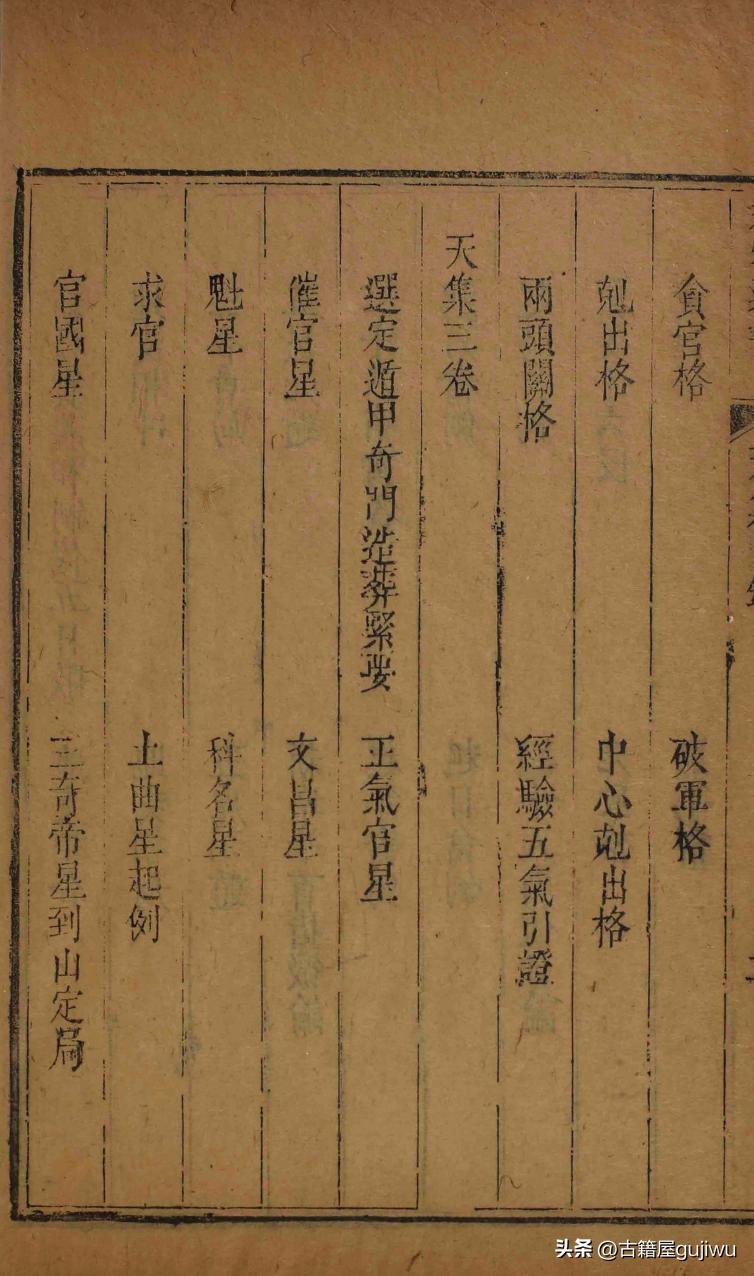 貪官格 破軍格
尅出格 中心尅出格
兩頭關格 經驗五氣引證
天集三卷
選定遁甲奇門造葬緊要 正氣官星
催官星 文昌星
魁星 科名星
求官 土曲星起例
官國星 三奇帝星到山定局
头条 @古籍屋gujiwu